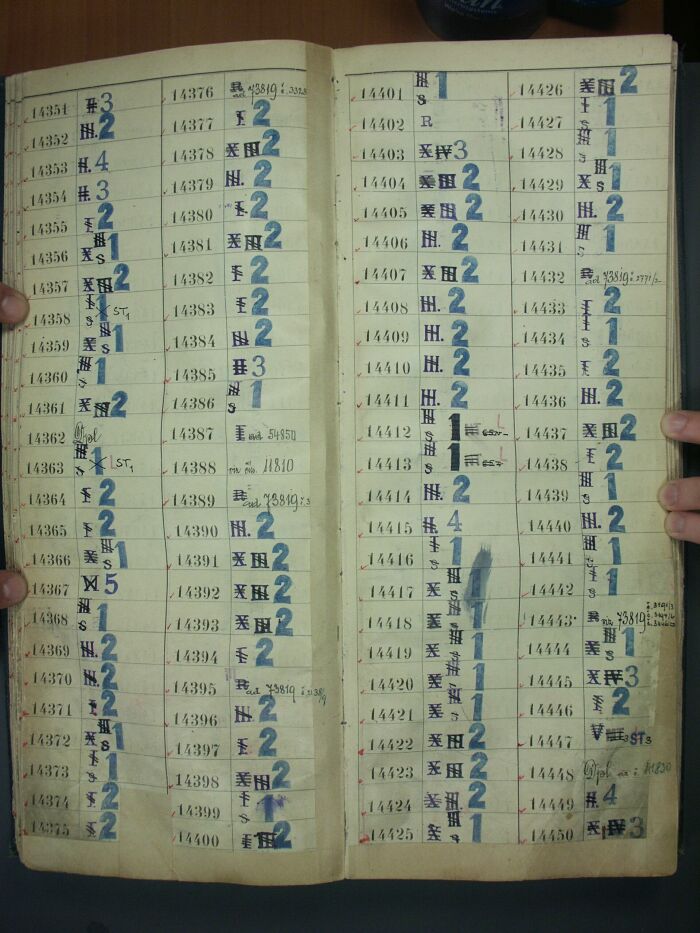 14351 3
14352 III. 2
14353 II. 4
14354 II. 3
14355 I 2
14356 X III s 1
14357 X III 2
14358 I s 1 X ST1
14359 X III s 1
14360 III s 1
14361 X III 2
14362 Dpl
14363 III s 1 X ST1
14364 I 2
14365 I 2
14366 X III s 1
14367 5
14368 III s 1
14369 III. 2
14370 III. 2
14371 I 2
14372 X III s 1
14373 I s 1
14374 I 2
14375 I 2
14376 R ad 73819
14377 I 2
14378 X III 2
14379 III. 2
14380 I 2
14381 X III 2
14382 I 2
14383 I 2
14384 III. 2
14385 II 3
14386 III s 1
14387 I ad 54850
14388 11810
14389 R ad 73819
14390 III. 2
14391 X III 2
14392 X III 2
14393 X III 2
14394 I 2
14395 R ad 73819
14396 III. 2
14397 I 2
14398 X III 2
14399 I s 1
14400 2
14401 III s 1
14402 R
14403 X IV 3
14404 X III 2
14405 X III 2
14406 III. 2
14407 X III 2
14408 III. 2
14409 III. 2
14410 III. 2
14411 III. 2
14412 III s 1
14413 III s 1
14414 III. 2
14415 II. 4
14416 I s 1
14417 X III s 1
14418 X III s 1
14419 X III s 1
14420 X III s 1
14421 X III s 1
14422 X III 2
14423 X III 2
14424 X III. 2
14425 X III s 1
14426 X III 2
14427 I s 1
14428 III s 1
14429 X III s 1
14430 III. 2
14431 III s 1
14432 R ad 73819
14433 I 2
14434 I s 1
14435 I 2
14436 III. 2
14437 X III 2
14438 I 2
14439 I s 1
14440 III. 2
14441 III s 1
14442 I s 1
14443 R 73819
14444 X III s 1
14445 X IV 3
14446 I 2
14447 V ST3
14448 Dpl
14449 II. 4
14450 X IV 3